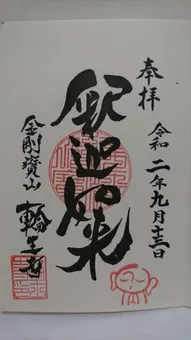 奉拝
令和二年九月十三日
釈迦如来
金剛寶山
輪王寺